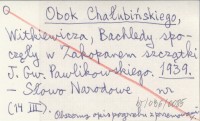 Obok Chałubińskiego,
Witkiewicza, Bachledy spo-
częły w Zakopanem szczątki
J. Gw. Pawlikowskiego. 1939.
— Słowo Narodowe nr
(14 III).
Obszerny opis pogrzebu z przemowami